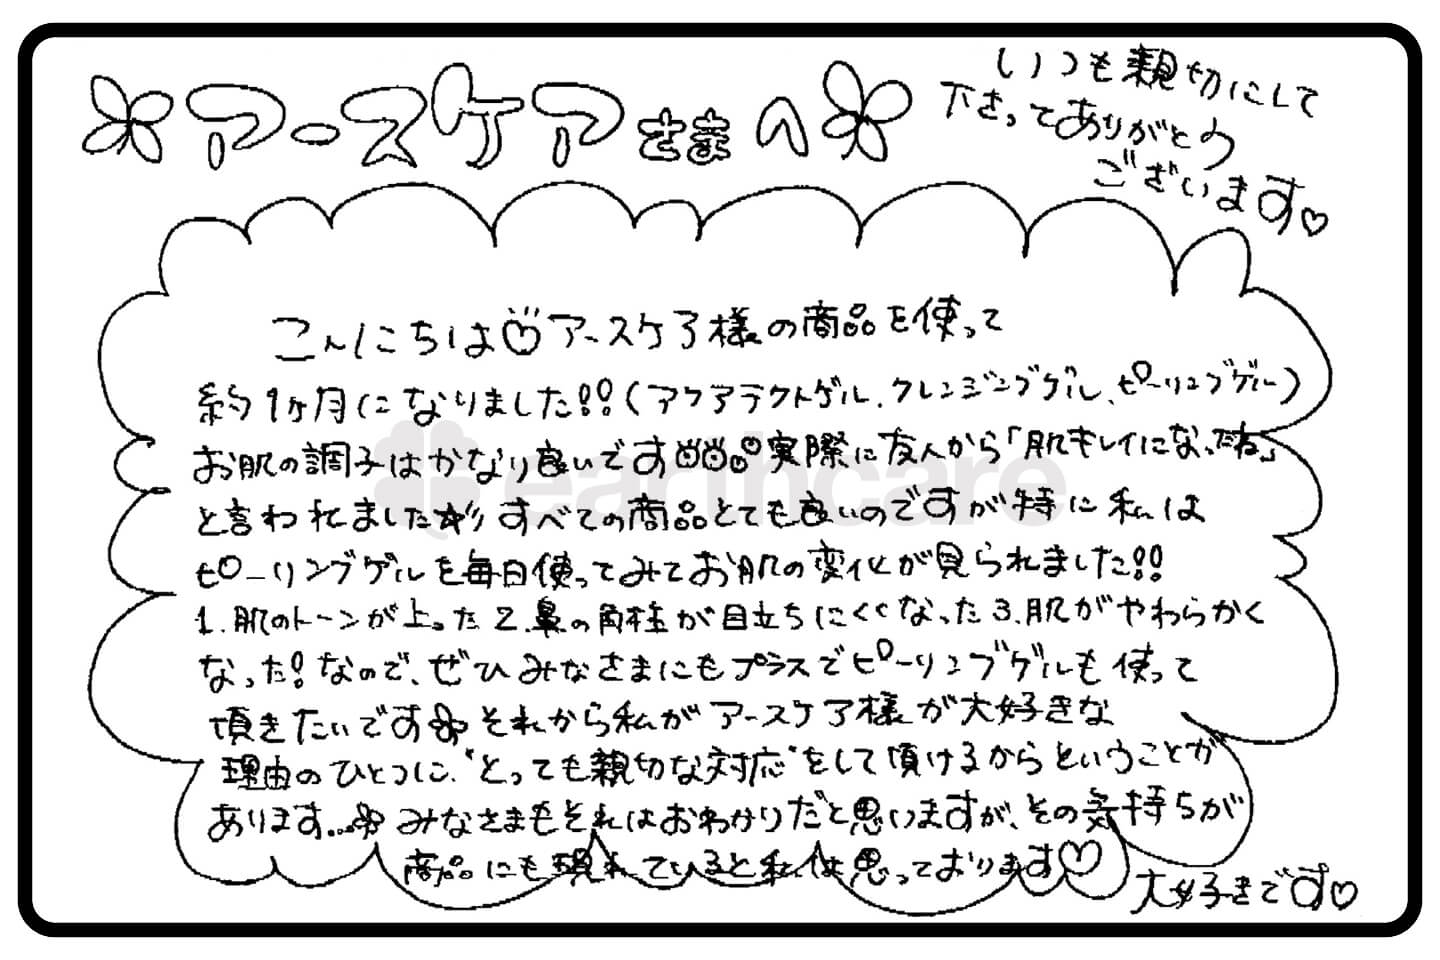 アースケアさまへ
いつも親切にして
下さってありがとう
ございます♡
こんにちは♡アースケア様の商品を使って
約1ヶ月になりました!!(アクアテクトゲル、クレンジングゲル、ピーリングゲル)
お肌の調子はかなり良いです 実際に友人から「肌キレイになったね」
と言われました☆彡 すべての商品とても良いのですが特に私は
ピーリングゲルを毎日使ってみてお肌の変化が見られました!!
1.肌のトーンが上った 2.鼻の角栓が目立ちにくくなった 3.肌がやわらかく
なった!なので、ぜひみなさまにもプラスでピーリングゲルも使って
頂きたいです それから私がアースケア様が大好きな
理由のひとつに、"とっても親切な対応"をして頂けるからということが
あります... みなさまもそれはおわかりだと思いますが、その気持ちが
商品にも現れていると私は思っております♡
大好きです♡
earthcare